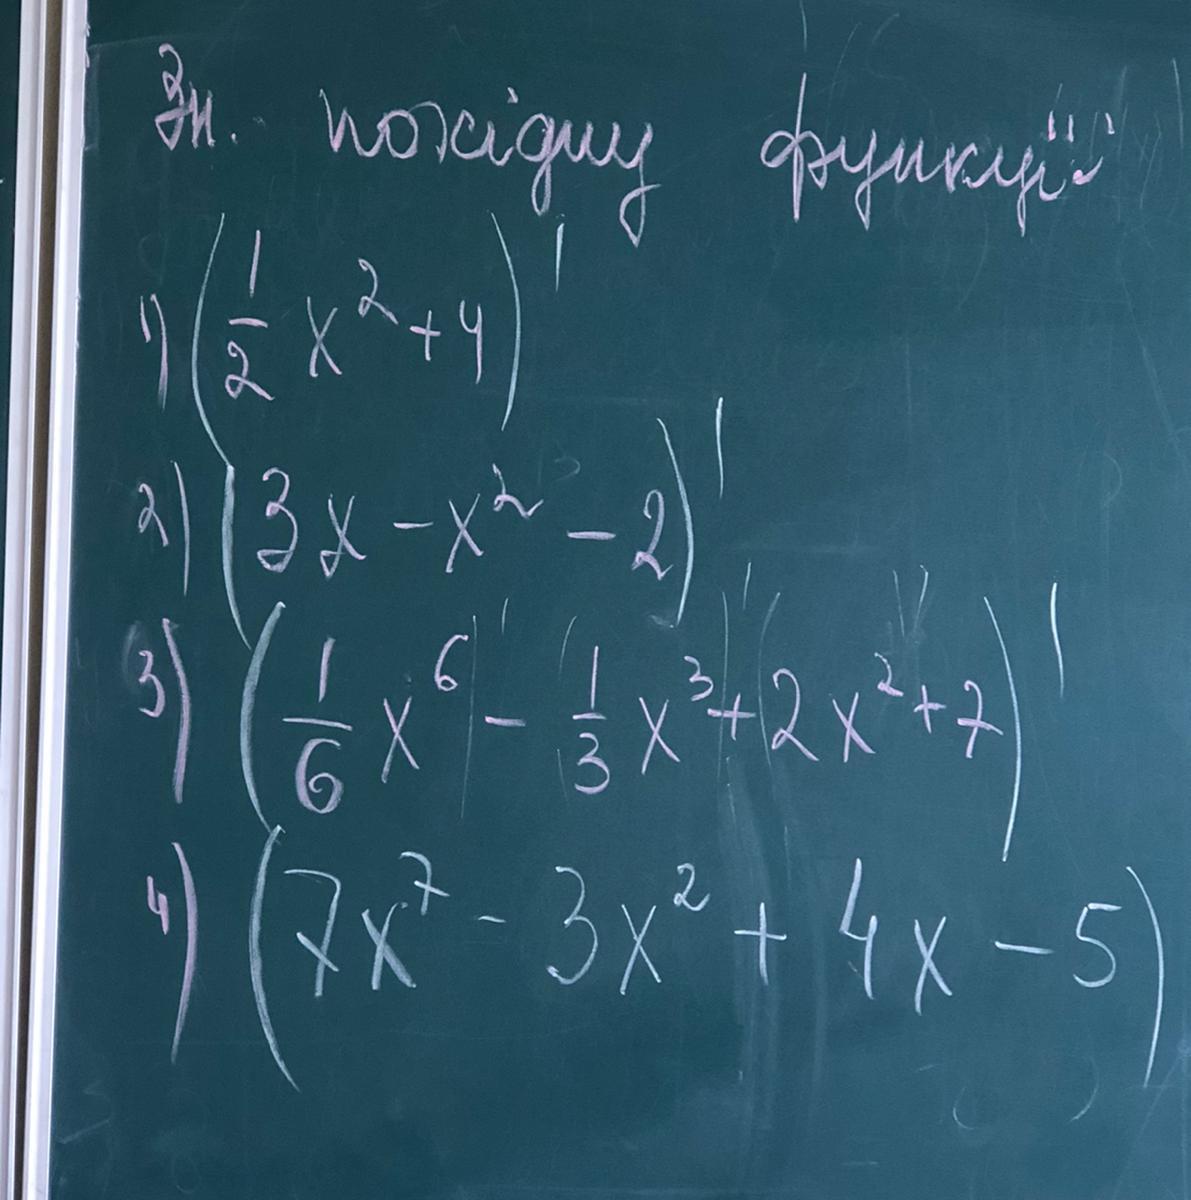 Зн. похідну функції
1) (1/2 x² + 4)'
2) (3x - x² - 2)'
3) (1/6 x⁶ - 1/3 x³ + 2x² + 7)'
4) (7x⁷ - 3x² + 4x - 5)